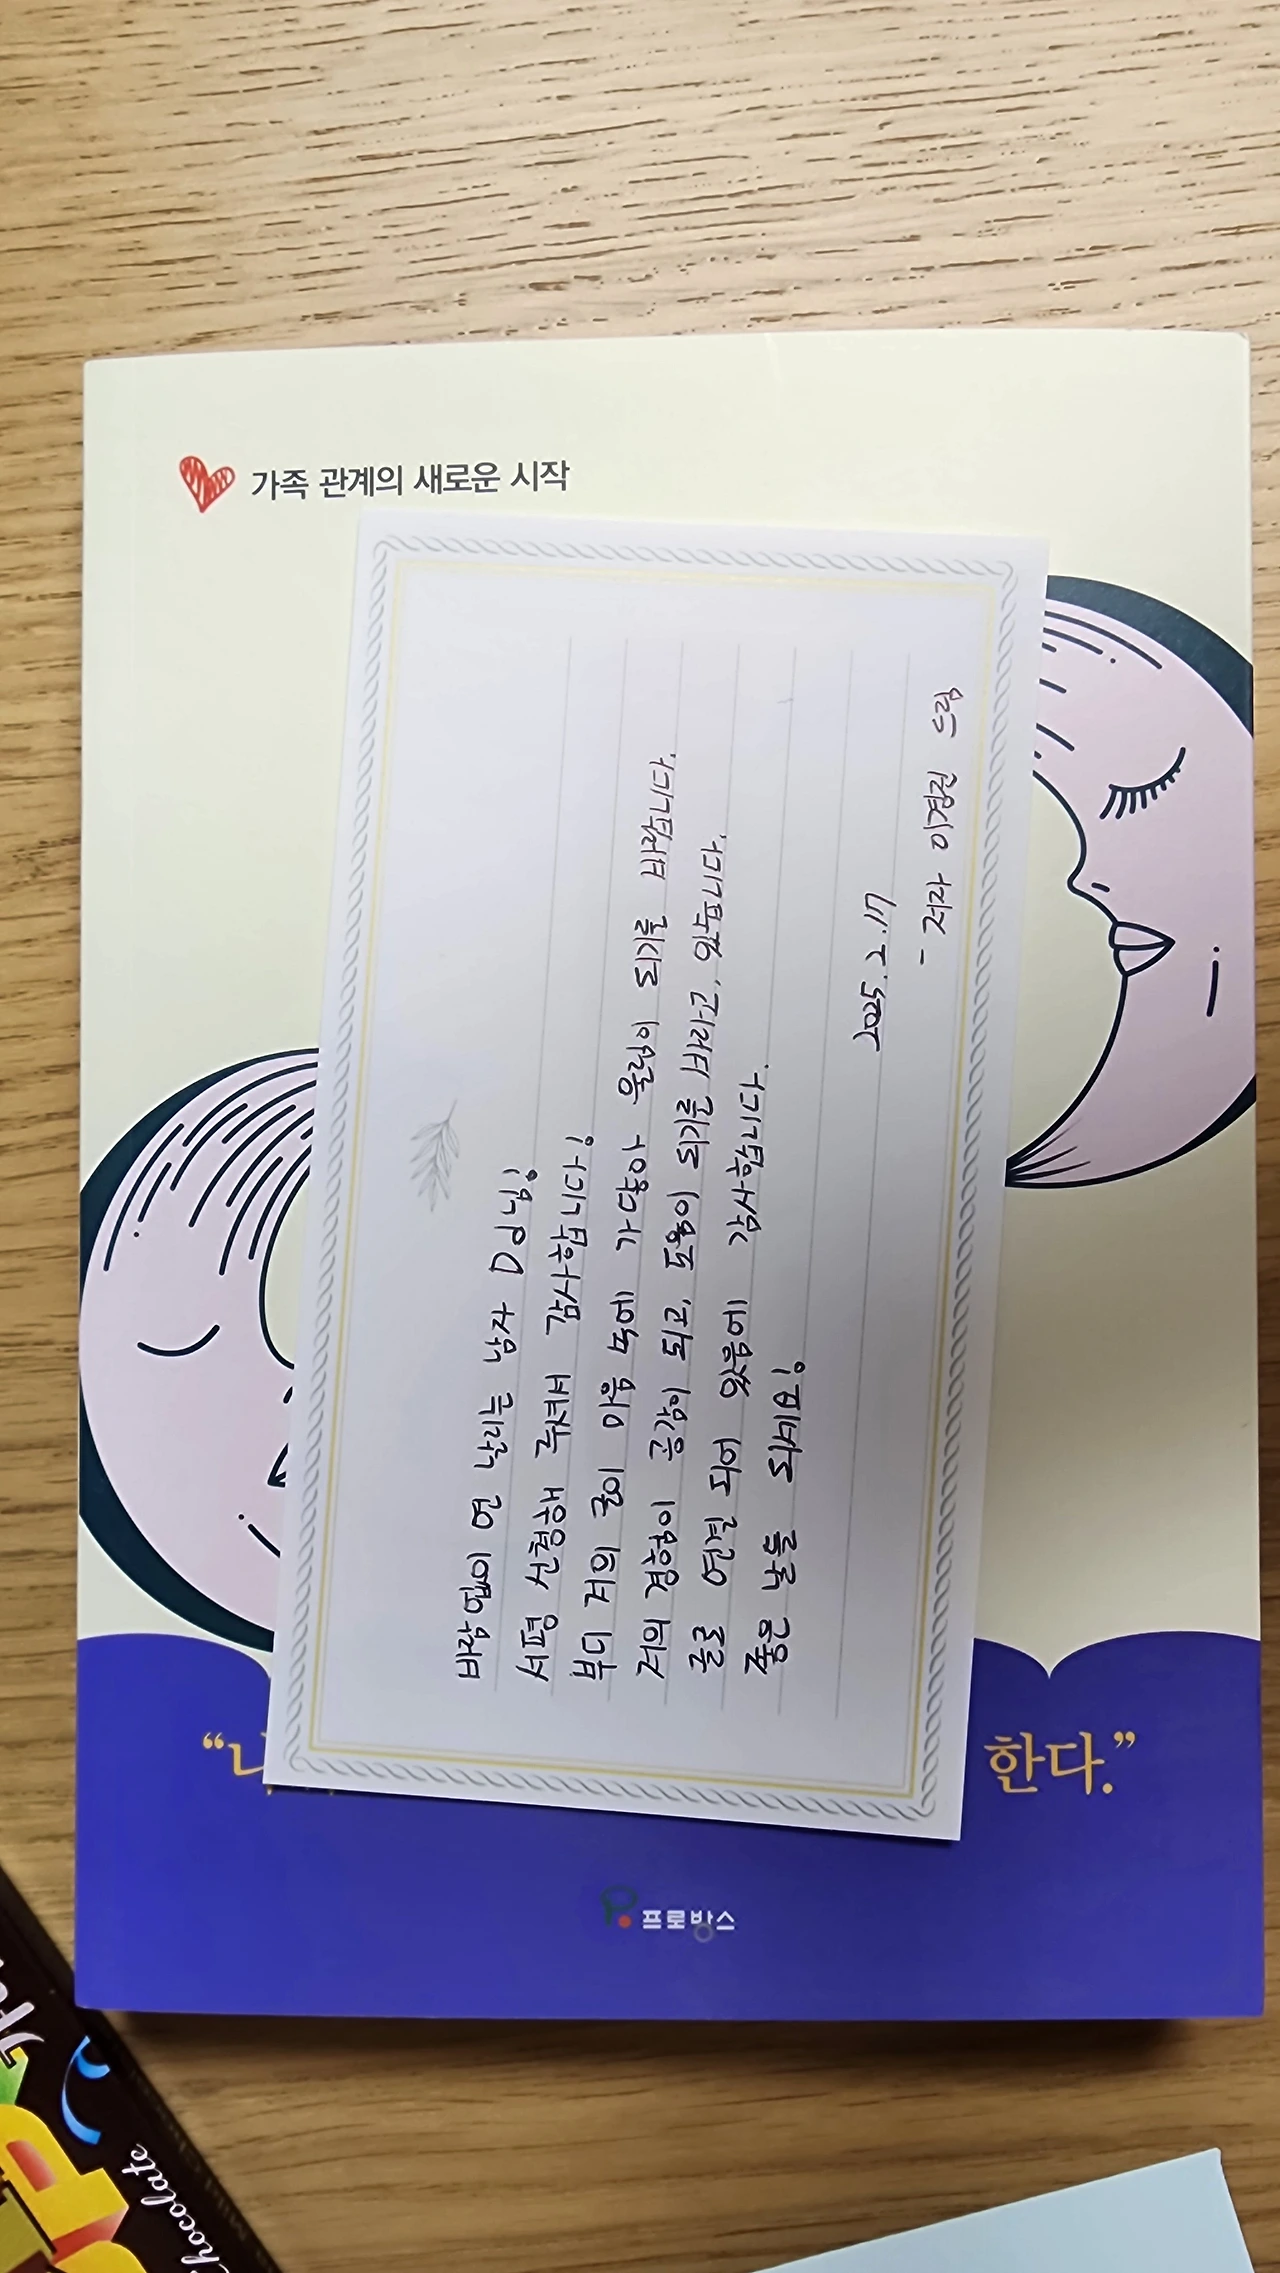 가족 관계의 새로운 시작
바람없이 연 날리는 남자 Dd님!
서평 신청해 주셔서 감사합니다!
부디 저의 글이 마음 속에 가닿아 울림이 되기를 바랍니다.
저의 경험이 공감이 되고, 도움이 되기를 바라고, 있습니다.
글로 연결되어 있음에 감사합니다.
좋은 날들 되세요!
2025. 2. 17
- 저자 드림
한다.”
프로방스
Chocolate